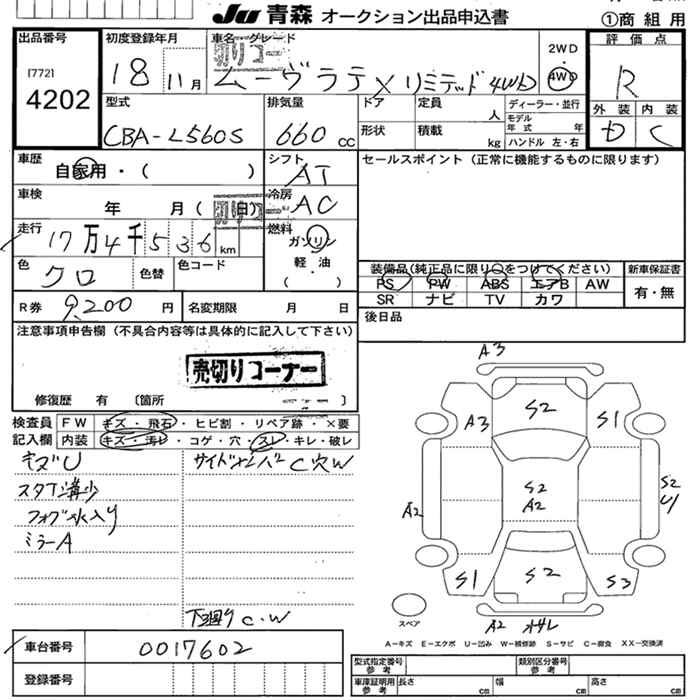 JU 青森 オークション出品申込書
①商 組 用
出品番号
[772]
4202
初度登録年月
18 11月
車名 グレード
切りコー
ムーヴラテ X リミテッド 4WD
2WD
4WD
評価点
R
型式
CBA-L560S
排気量
660 cc
ドア
定員
人
形状
積載
kg
ディーラー・並行
モデル
年式
年
ハンドル 左・右
外装
内装
D
C
車歴
自家用・( )
シフト
AT
セールスポイント(正常に機能するものに限ります)
車検
年 月( 日)
切りコー
冷房
AC
走行
17万4千536km
燃料
ガソリン
軽・油
( )
色
クロ
色替
色コード
装備品(純正品に限り○をつけてください)
新車保証書
PS PW ABS エアB AW
SR ナビ TV カワ
有・無
R券 9,200円
名変期限 月 日
後日品
注意事項申告欄(不具合内容等は具体的に記入して下さい)
売切りコーナー
修復歴 有 〔箇所
検査員
記入欄
FW キズ・飛石・ヒビ割・リペア跡・×要
内装 キズ・汚レ・コゲ・穴・スレ・キレ・破レ
キズU
スタT溝少
フォグ水入り
ミラーA
C穴W
下廻り C.W
A3
A3
S2
S1
A2
S2
A2
S2
S1
S2
S3
A2
スペア
A-キズ E-エクボ U-凹み W-補修跡 S-サビ C-腐食 XX-交換済
車台番号
0017602
登録番号
型式指定番号
参考
類別区分番号
参考
車庫証明用
参考
長さ cm
幅 cm
高さ cm